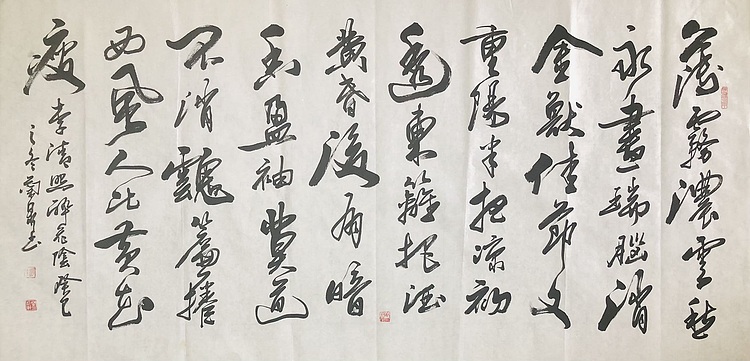 薄霧濃雲愁
永晝瑞腦消
金獸佳節又
重陽半枕凉初
透東籬把酒
黄昏後有暗
香盈袖莫道
不消魂簾捲
西風人比黄花
瘦
李清照醉花陰癸巳
之冬蘭書